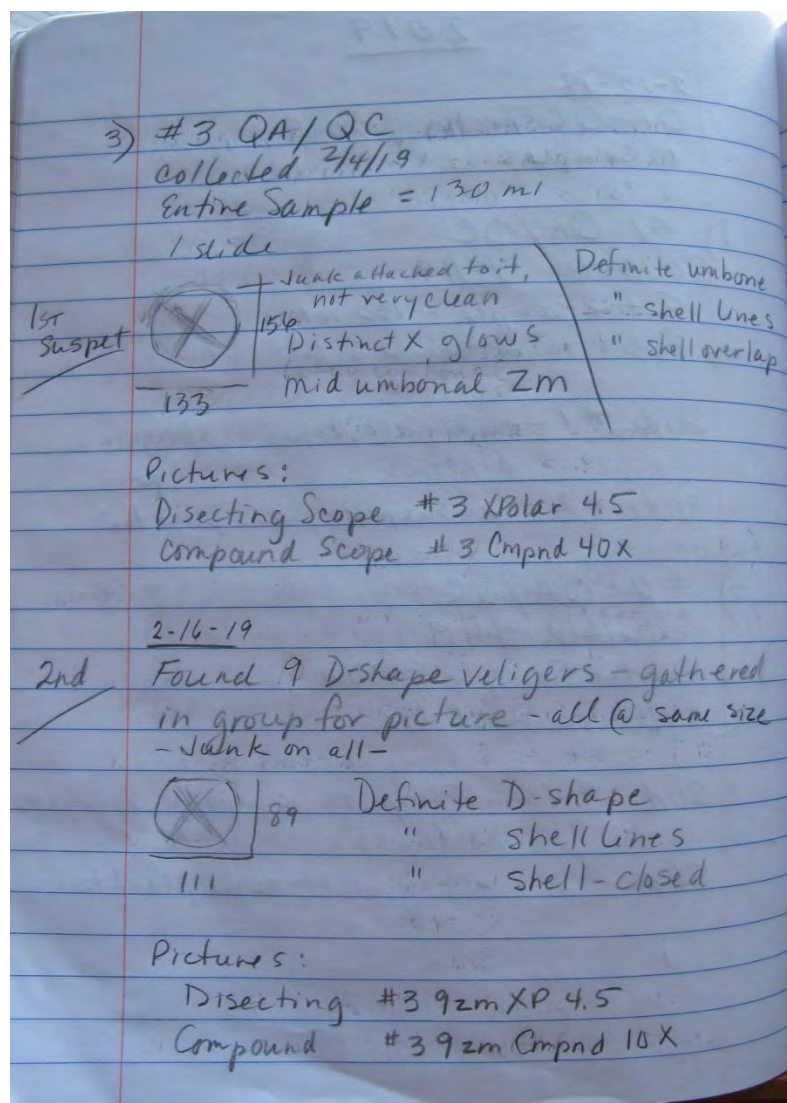 3) #3 QA/QC
collected 2/4/19
Entire Sample = 130 ml
1 slide
1ST
Suspet
156
133
Junk attached to it,
not very clean
Distinct X, glows
mid umbonal Zm
Definite umbone
" shell lines
" shell overlap
Pictures:
Disecting Scope #3 XPolar 4.5
Compound Scope #3 Cmpnd 40X
2-16-19
2nd Found 9 D-shape veligers - gathered
in group for picture - all @ same size
- Junk on all -
89
111
Definite D-shape
" shell lines
" shell-closed
Pictures:
Disecting #3 9zm XP 4.5
Compound #3 9zm Cmpnd 10X